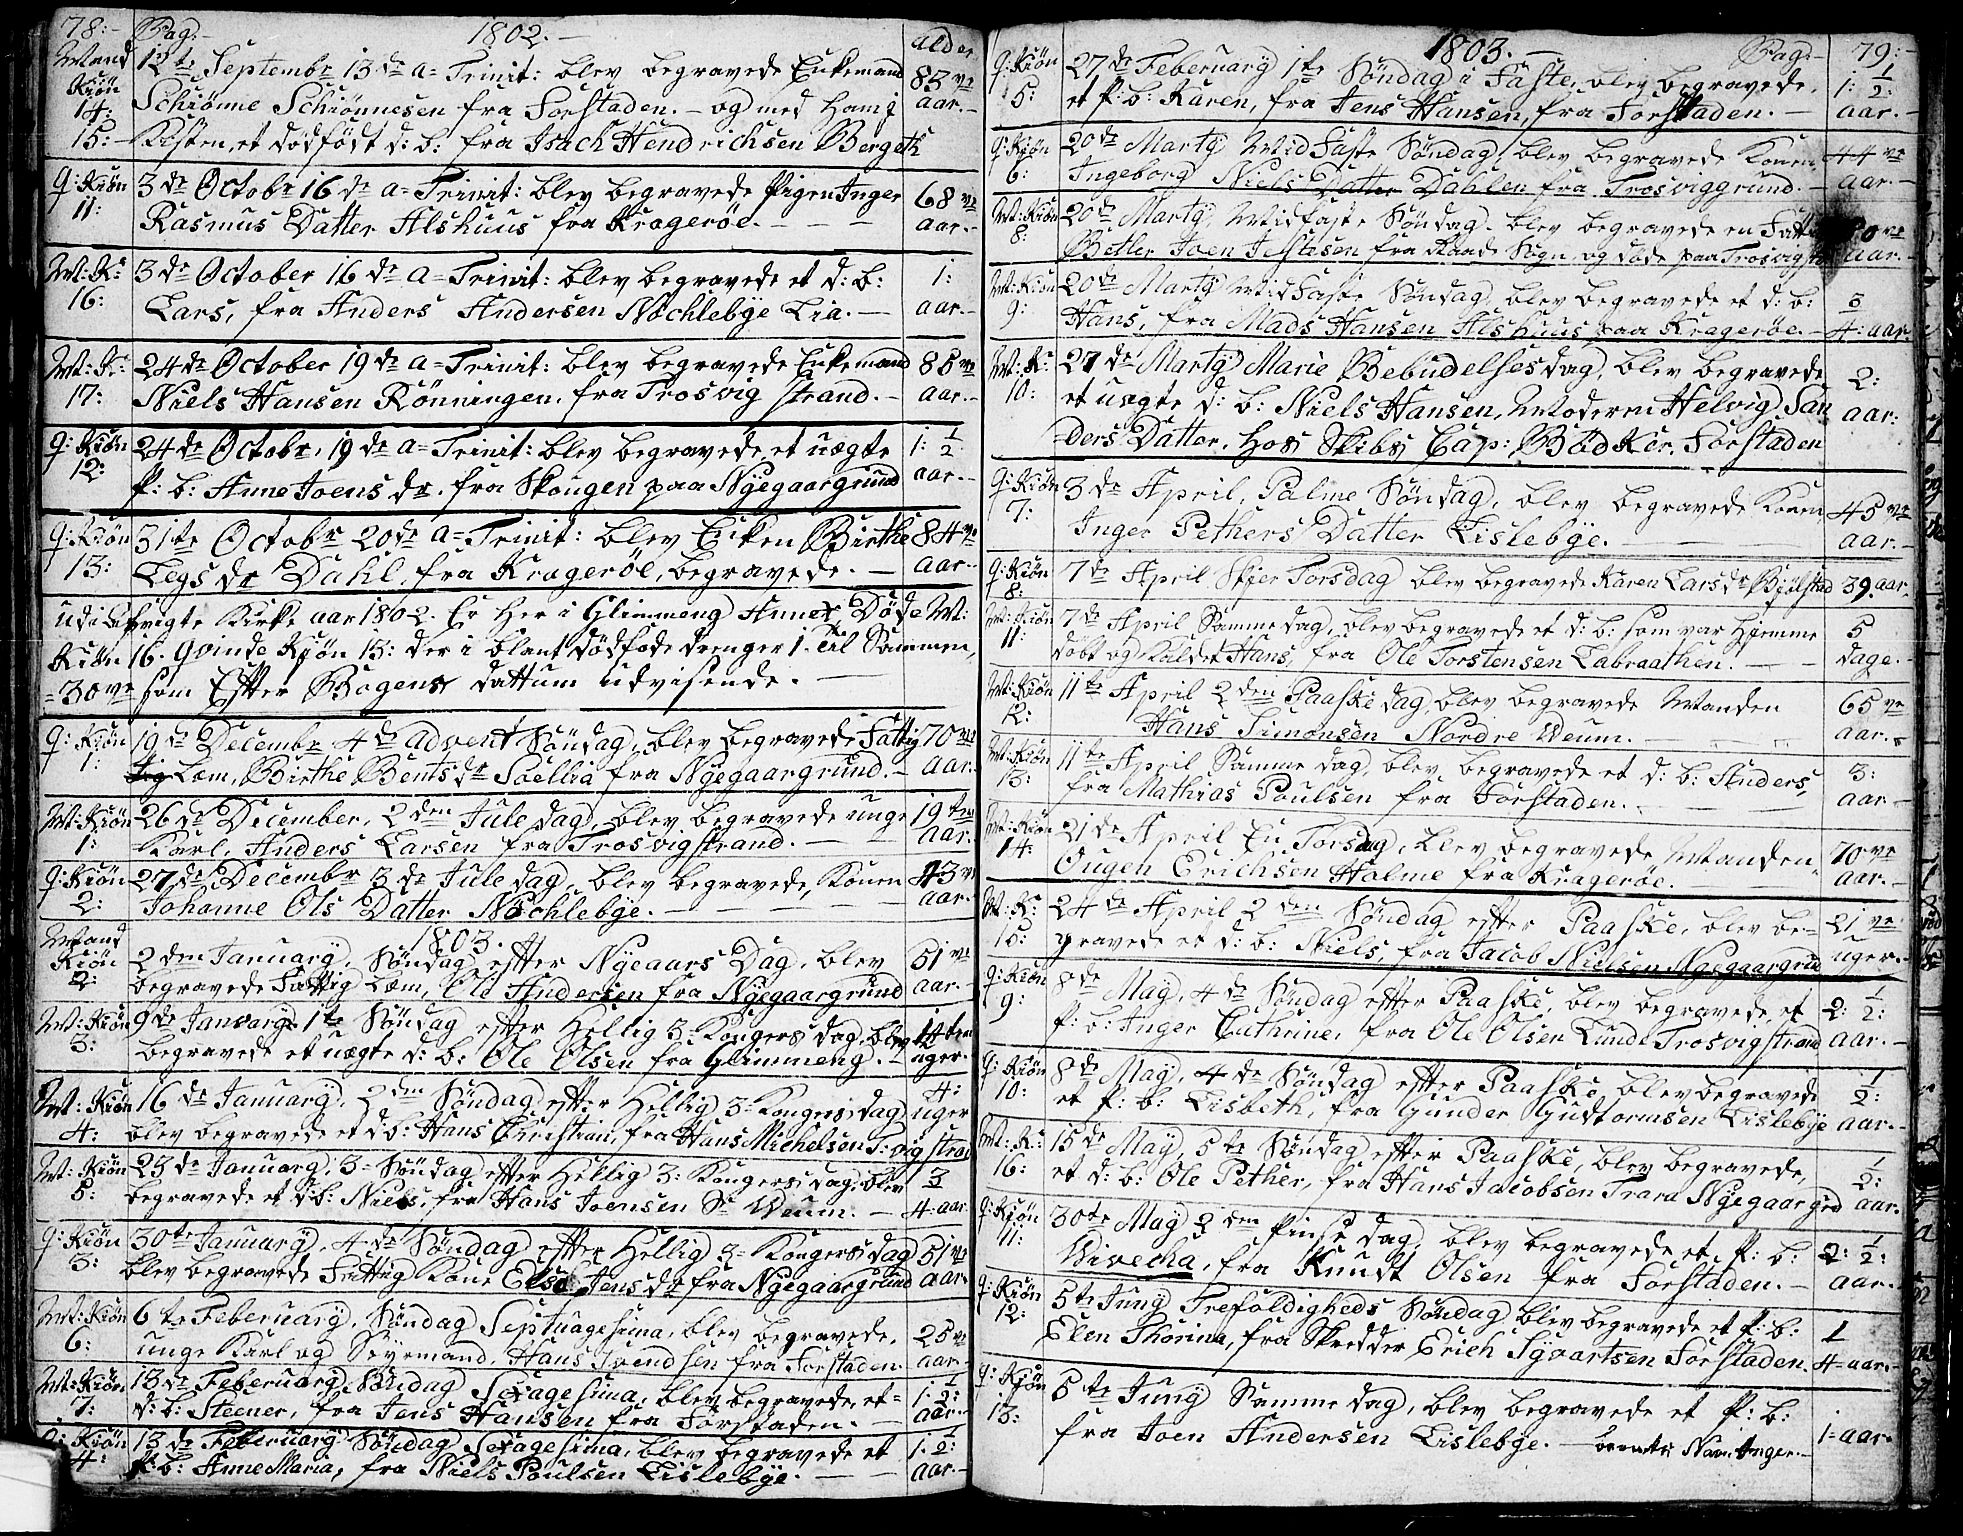 78:- Pag:- 1802.- alder
Mand Kiön 14: 12te Septembr 13de a= Trinit: blev begravede Enkemand 83ve
Schiönne Schiönnesen fra Forstaden.- og med ham i aar.-
15:- Kisten, et dödfödt d: b: fra Isach Hendrichsen Bergeth
Q: Kiön 3de Octobr 16de a= Trinit: blev begravede Pigen Inger 68ve
11: Rasmus Datter Alshuus fra Krageröe. - - - aar.-
M: K: 3de October 16de a= Trinit: blev begravede et d: b: 1:
16: Lars, fra Anders Andersen Nochlebye Lia.- aar.-
M: K: 24de October 19de a= Trinit: blev begravede Enkemand 85ve
17: Niels Hansen Rönningen, fra Trosvig strand.- aar.-
Q: Kiön 24de Octobr, 19de a= Trinit: blev begravede et uægte 1: 1/2
12: P: b: Anne Joens dr. fra Skougen paa Nyegaargrund aar.-
Q: Kiön 31te Octobr 20de a= Trinit: blev Enken Birthe 84ve
13: dr Dahl, fra Krageröe, begravede.- aar.-
Kirke aar 1802. Er Her i Glimmeng Annex Döde M:
Kiön 16. Qvinde Kiön 13: der i blant dödföde drenger 1. Til Sammen,
=30ve som Efter Bogens dattum udvisende.-
Q: Kiön 19de Decembr 4de Advent Söndag, blev begravede Fattig 70ve
1: Lem, Birthe Bents dr fra Nyegaargrund.- aar.
M: Kiön 26de December, 2den Jule dag, blev begravede unge 19ten
1: Karl, Anders Larsen fra Trosvigstrand.- - aar.
Q: Kiön 27de Decembr 3de Jule dag, blev begravede, Konen 43ve
2: Johanne Ols Datter Nochlebye. - - - aar.-
1803.
Mand Kiön 2: 2den January, Söndag efter Nyeaars Dag, blev 51ve
begravede Fattig Lem, Ole Andersen fra Nyegaargrund aar.-
M: Kiön 9de January 1te Söndag efter Hellig 3= Kongers dag, blev 14ten
3: begravede et uægte d: b: Ole Olsen fra Glimmeng.- uger.-
M: Kiön 16de January, 2den Söndag efter Hellig 3= Kongersdag 4: uger
4: blev begravede et d: b: Hans Christian, fra Hans Michelsen T: vig strad
M: Kiön 23de January, 3= Söndag efter Hellig 3: Kongers dag, blev 3
5: begravede et d: b: Niels, fra Hans Joensen Sr Veum.- 4 aar.
Q: Kiön 30te January, 4de Söndag efter Hellig 3= Kongers dag 51ve
3: blev begravede Fattig Kone Else Jens dr fra Nyegaargrund aar.
M: Kiön 6te Februarij, Söndag Septuagesima, blev begravede, 25ve
6: unge Karl og Söymand, Hans Svendsen fra Forstaden. aar.-
M: Kiön 13de Februarij Söndag Sexagesima, blev begravede, et= 1: 1/2:
7: d: b: Steener, fra Jens Hansen fra Forstaden.- aar.-
Q: Kiön 13de Februarij Söndag Sexagesima, blev begravede et 1: 1/2:
4: P: b: Anne Maria, fra Niels Poulsen Lislebye. - - aar.-
1803.- Pag:- 79:-
Q: Kiön 27de Februarij 1te Söndag i Faste, blev begravede, 1: 1/2:
5: et P: b: Karen, fra Jens Hansen, fra Forstaden.- aar.-
Q: Kiön 20de Marty Midfaste Söndag, blev begravede Konen 44ve
6: Ingeborg Niels Datter Dahlen fra Trosviggrund.- aar.-
M: Kiön 20de Marty, Midfaste Söndag, blev begravede en
8: Betler Joen fra Raade Sogn og döde paa aar.-
M: Kiön 20de Marty Midfaste Söndag, blev begravede et d: b: 3
9: Hans, fra Mads Hansen Alshuus paa Krageröe.- 4: aar.
M: K: 27de Marty Marie Bebudelses dag, blev begravede 2:
10: et uægte d: b: Niels Hansen, Moderen Helvig San aar:
=ders Datter. Hos Skibs Cap: Bödker. Forstaden
Q: Kiön 3de April, Palme Söndag, blev begravede Konen 45ve
7: Inger Pethers Datter Lislebye. - - aar.-
Q: Kiön 7de April Skjer Torsdag blev begravede Karen Lars dr Bjölstad 39 aar.
8:
M: Kiön 7de April Samme dag, blev begravede et d: b: som var Hjemme 5
11: döbt og Kaldet Hans, fra Ole Torstensen Labraathen.- dage.-
M: Kiön 11te April 2den Paaske dag, blev begravede Manden 65ve
12: Hans Simonsen Nordre Veum. - aar.-
M: Kiön 11te April Samme dag, blev begravede et d: b: Anders, 3:
13: fra Mathias Poulsen fra Forstaden.- aar.-
M: Kiön 21de April En Torsdag, blev begravede, Manden 70ve
14: Ougen Erichsen Halme fra Krageröe. - aar.-
M: K: 24de April 2den Söndag efter Paaske, blev be= 21ve
15: gravede et d: b: Niels, fra Jacob Nielsen Nyegaargrud uger.-
Q: Kiön 8de May, 4de Söndag efter Paaske, blev begravede, et 2: 1/2:
9: P: b: Inger Cathrine, fra Ole Olsen Lunde Trosvigstrand aar.-
Q: Kiön 8de May, 4de Söndag efter Paaske blev begravede 1/2:
10: et P: b: Lisbeth, fra Gunder Gudtormsen Lislebye aar.-
M: K: 15de May, 5te Söndag efter Paaske, blev begravede, 1/2:
16: et d: b: Ole Pether, fra Hans Jacobsen Trara Nyegaar grd aar.-
Q: Kiön 30te May 2den Pinse dag, blev begravede et P: b: 2: 1/2:
11: Wivecha, fra Knudt Olsen fra Forstaden.- aar.-
Q: Kiön 5te Juny Trefoldigheds Söndag blev begravede et P: b: 1
12: Elen Thorina, fra Skredder Erich Syvartsen Forstaden. 4= aar.-
Q: Kiön 5te Juny Samme dag, blev begravede et P: b:
13: fra Joen Andersen Lislebye.- Navn Inger.- 1= aar.